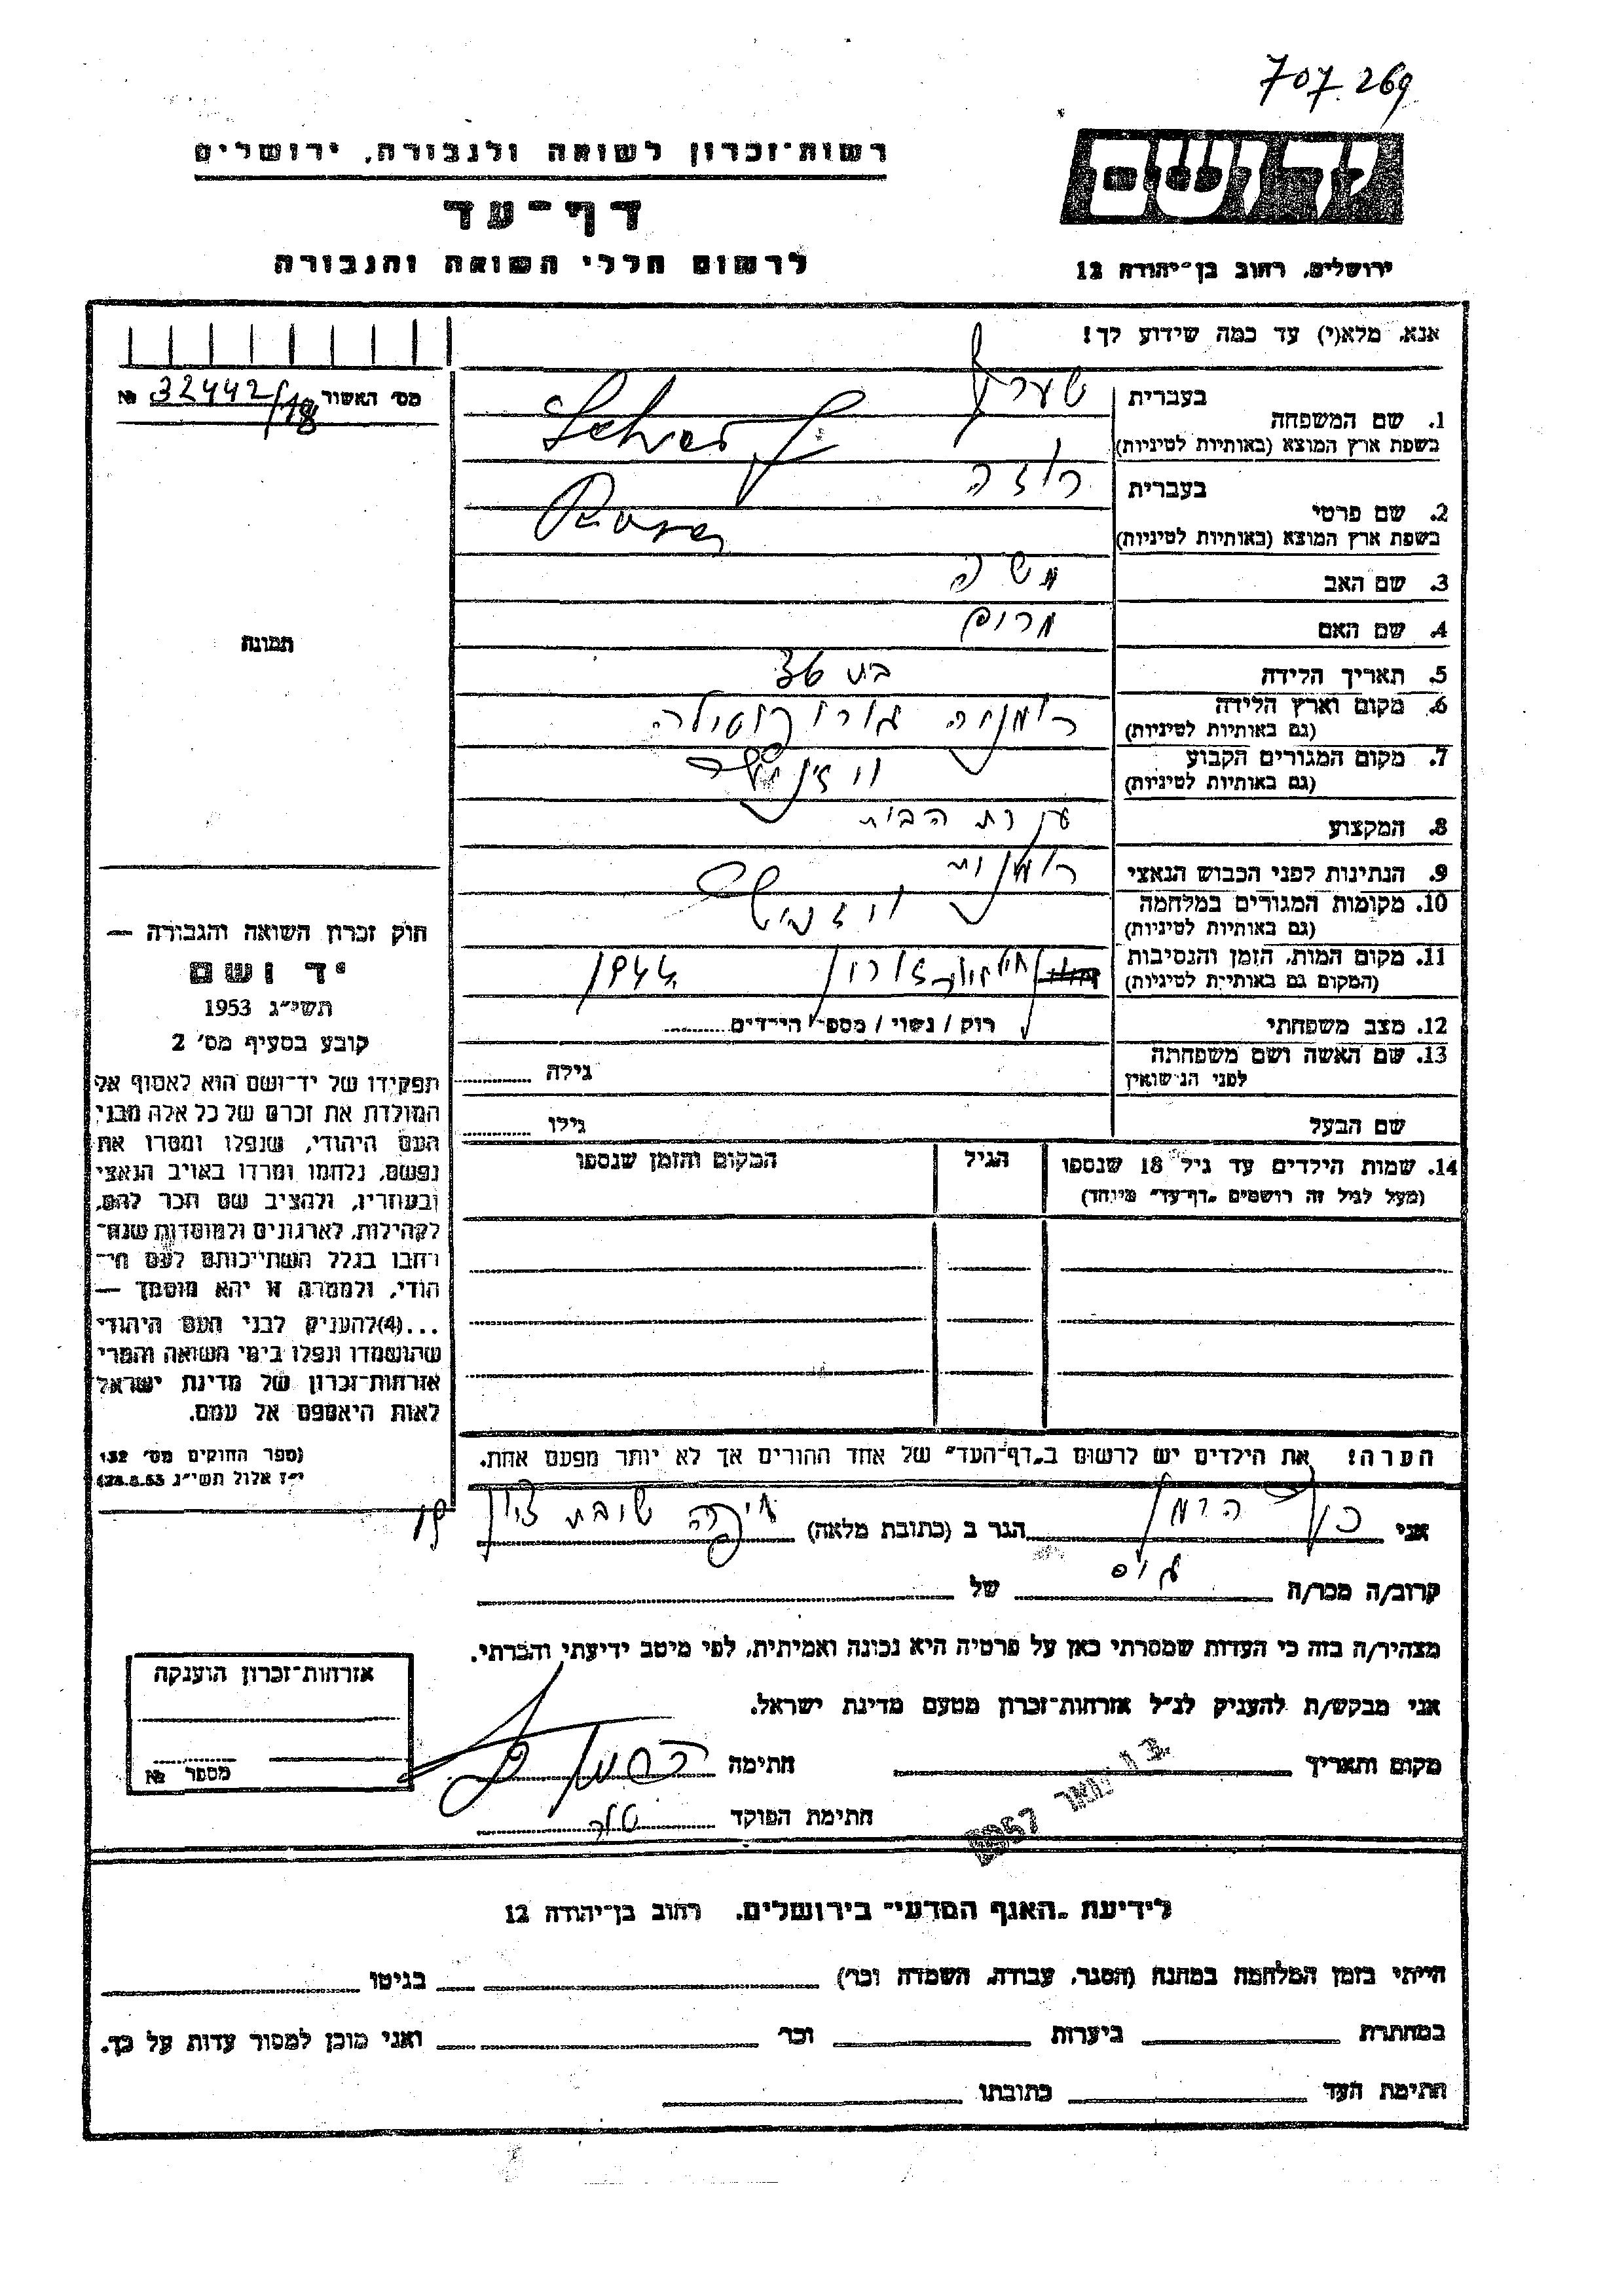 707.269
יד ושם
רשות־זכרון לשואה ולגבורה, ירושלים
דף־עד
לרשום חללי השואה והגבורה
ירושלים, רחוב בן־יהודה 12
אנא, מלא(י) עד כמה שידוע לך!
מס׳ האשור № 32442/18
1. שם המשפחה
בעברית
בשפת ארץ המוצא (באותיות לטיניות)
2. שם פרטי
בעברית רוזה
בשפת ארץ המוצא (באותיות לטיניות)
3. שם האב משה
4. שם האם מרים
תמונה
5. תאריך הלידה בת 36
6. מקום וארץ הלידה רומניה
(גם באותיות לטיניות)
7. מקום המגורים הקבוע
(גם באותיות לטיניות)
8. המקצוע עקרת הבית
9. הנתינות לפני הכבוש הנאצי רומנית
10. מקומות המגורים במלחמה
(גם באותיות לטיניות)
11. מקום המות, הזמן והנסיבות 1944
(המקום גם באותיות לטיניות)
12. מצב משפחתי רוק / נשוי / מספר הילדים
13. שם האשה ושם משפחתה
לפני הנישואין
גילה
שם הבעל גילו
14. שמות הילדים עד גיל 18 שנספו
(מעל לגיל זה רושמים „דף־עד” מיוחד)
הגיל
המקום והזמן שנספו
חוק זכרון השואה והגבורה —
יד ושם
תשי״ג 1953
קובע בסעיף מס׳ 2
תפקידו של יד־ושם הוא לאסוף אל
המולדת את זכרם של כל אלה מבני
העם היהודי, שנפלו ומסרו את
נפשם, נלחמו ומרדו באויב הנאצי
ובעוזריו, ולהציב שם וזכר להם,
לקהילות, לארגונים ולמוסדות שנח־
רבו בגלל השתייכותם לעם הי־
הודי, ולמטרה זו יהא מוסמך —
...(4) להעניק לבני העם היהודי
שהושמדו ונפלו בימי השואה והמרי
אזרחות־זכרון של מדינת ישראל
לאות היאספם אל עמם.
(ספר החוקים מס׳ 132
י״ז אלול תשי״ג 28.8.53)
הערה! את הילדים יש לרשום ב„דף־העד” של אחד ההורים אך לא יותר מפעם אחת.
אני הרמן הגר ב (כתובת מלאה) חיפה שיבת ציון 19
קרוב/ה מכר/ה גיס של
מצהיר/ה בזה כי העדות שמסרתי כאן על פרטיה היא נכונה ואמיתית, לפי מיטב ידיעתי והכרתי.
אני מבקש/ת להעניק לנ״ל אזרחות־זכרון מטעם מדינת ישראל.
מקום ותאריך 1957 חתימה
חתימת הפוקד
אזרחות־זכרון הוענקה
מספר №
לידיעת „האגף המדעי” בירושלים, רחוב בן־יהודה 12
הייתי בזמן המלחמה במחנה (הסגר, עבודה, השמדה וכו׳) בגיטו
במחתרת ביערות וכו׳ ואני מוכן למסור עדות על כך.
חתימת העד כתובתו